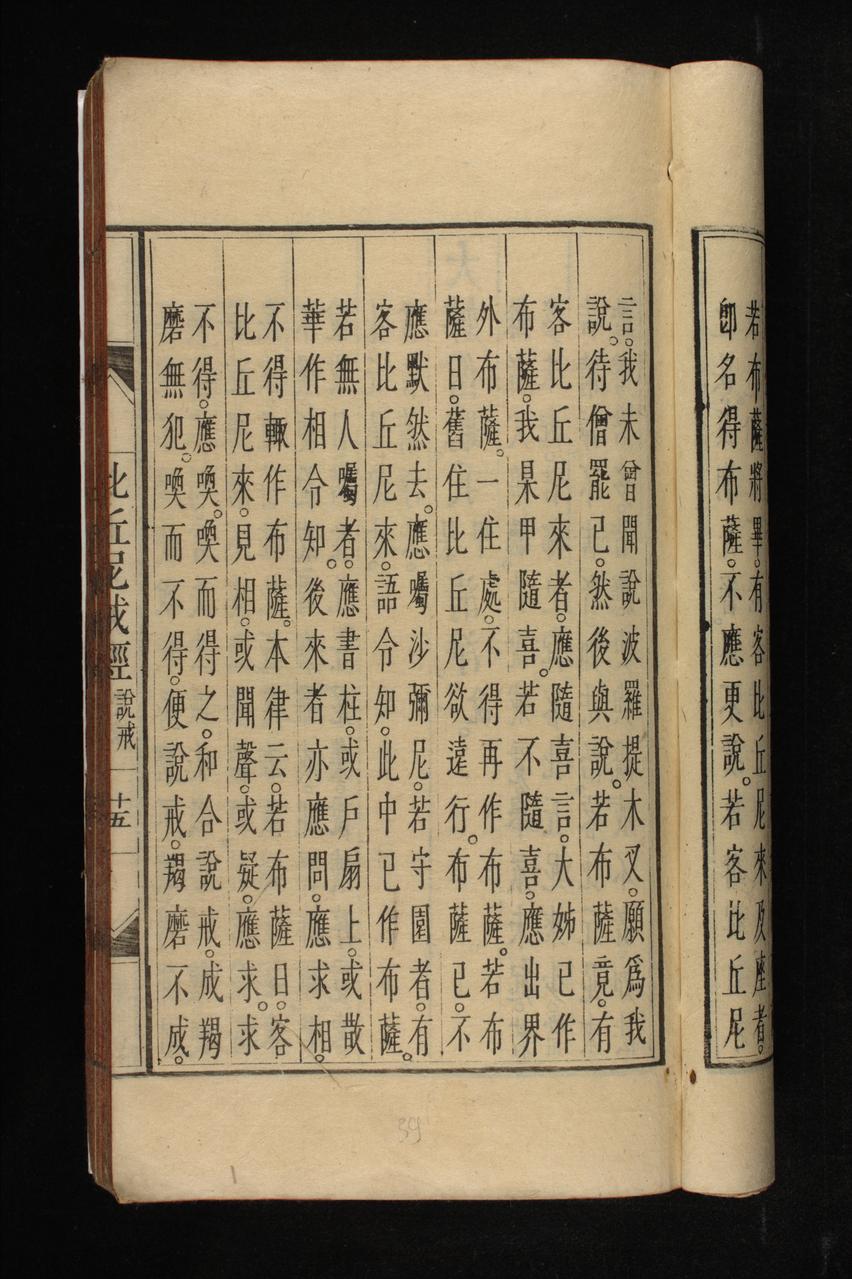 若布薩將畢。有客比丘尼來及座者。
卽名得布薩。不應更說。若客比丘尼
言。我未曾聞說波羅提木叉。願爲我
說。待僧罷已。然後與說。若布薩竟。有
客比丘尼來者。應隨喜言。大姊已作
布薩。我某甲隨喜。若不隨喜。應出界
外布薩。一住處。不得再作布薩。若布
薩日。舊住比丘尼欲遠行。布薩已。不
應默然去。應囑沙彌尼。若守園者。有
客比丘尼來。語令知。此中已作布薩。
若無人囑者。應書柱。或戶扇上。或散
華作相令知。後來者亦應問。應求相。
不得輒作布薩。本律云。若布薩日。客
比丘尼來。見相。或聞聲。或疑。應求。求
不得。應喚。喚而得之。和合說戒。成羯
磨無犯。喚而不得。便說戒。羯磨不成。
比丘尼戒經 說戒 十五
39